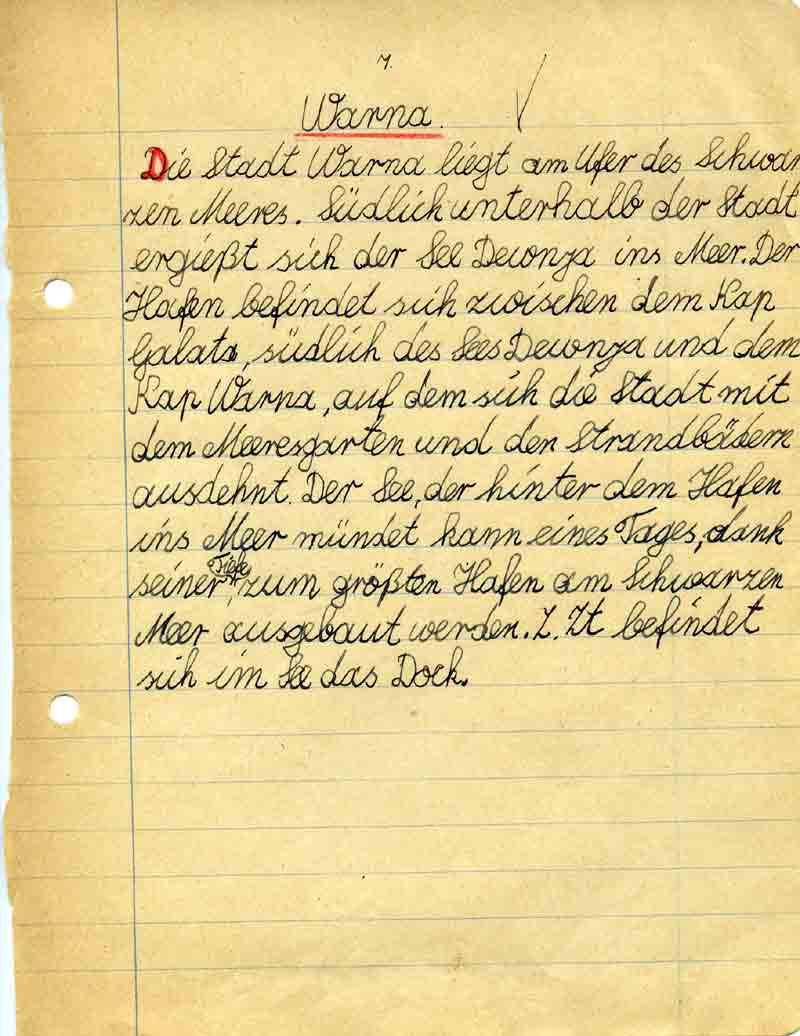 7.
Warna.
Die Stadt Warna liegt am Ufer des Schwar
zen Meeres. Südlich unterhalb der Stadt
ergießt sich der See Dewonja ins Meer. Der
Hafen befindet sich zwischen dem Kap
Galata, südlich des Sees Dewonja und dem
Kap Warna, auf dem sich die Stadt mit
dem Meeresgarten und den Strandbädern
ausdehnt. Der See, der hinter dem Hafen
ins Meer mündet kann eines Tages, dank
seiner Tiefe, zum größten Hafen am Schwarzen
Meer ausgebaut werden. Z. Zt befindet
sich im See das Dock.